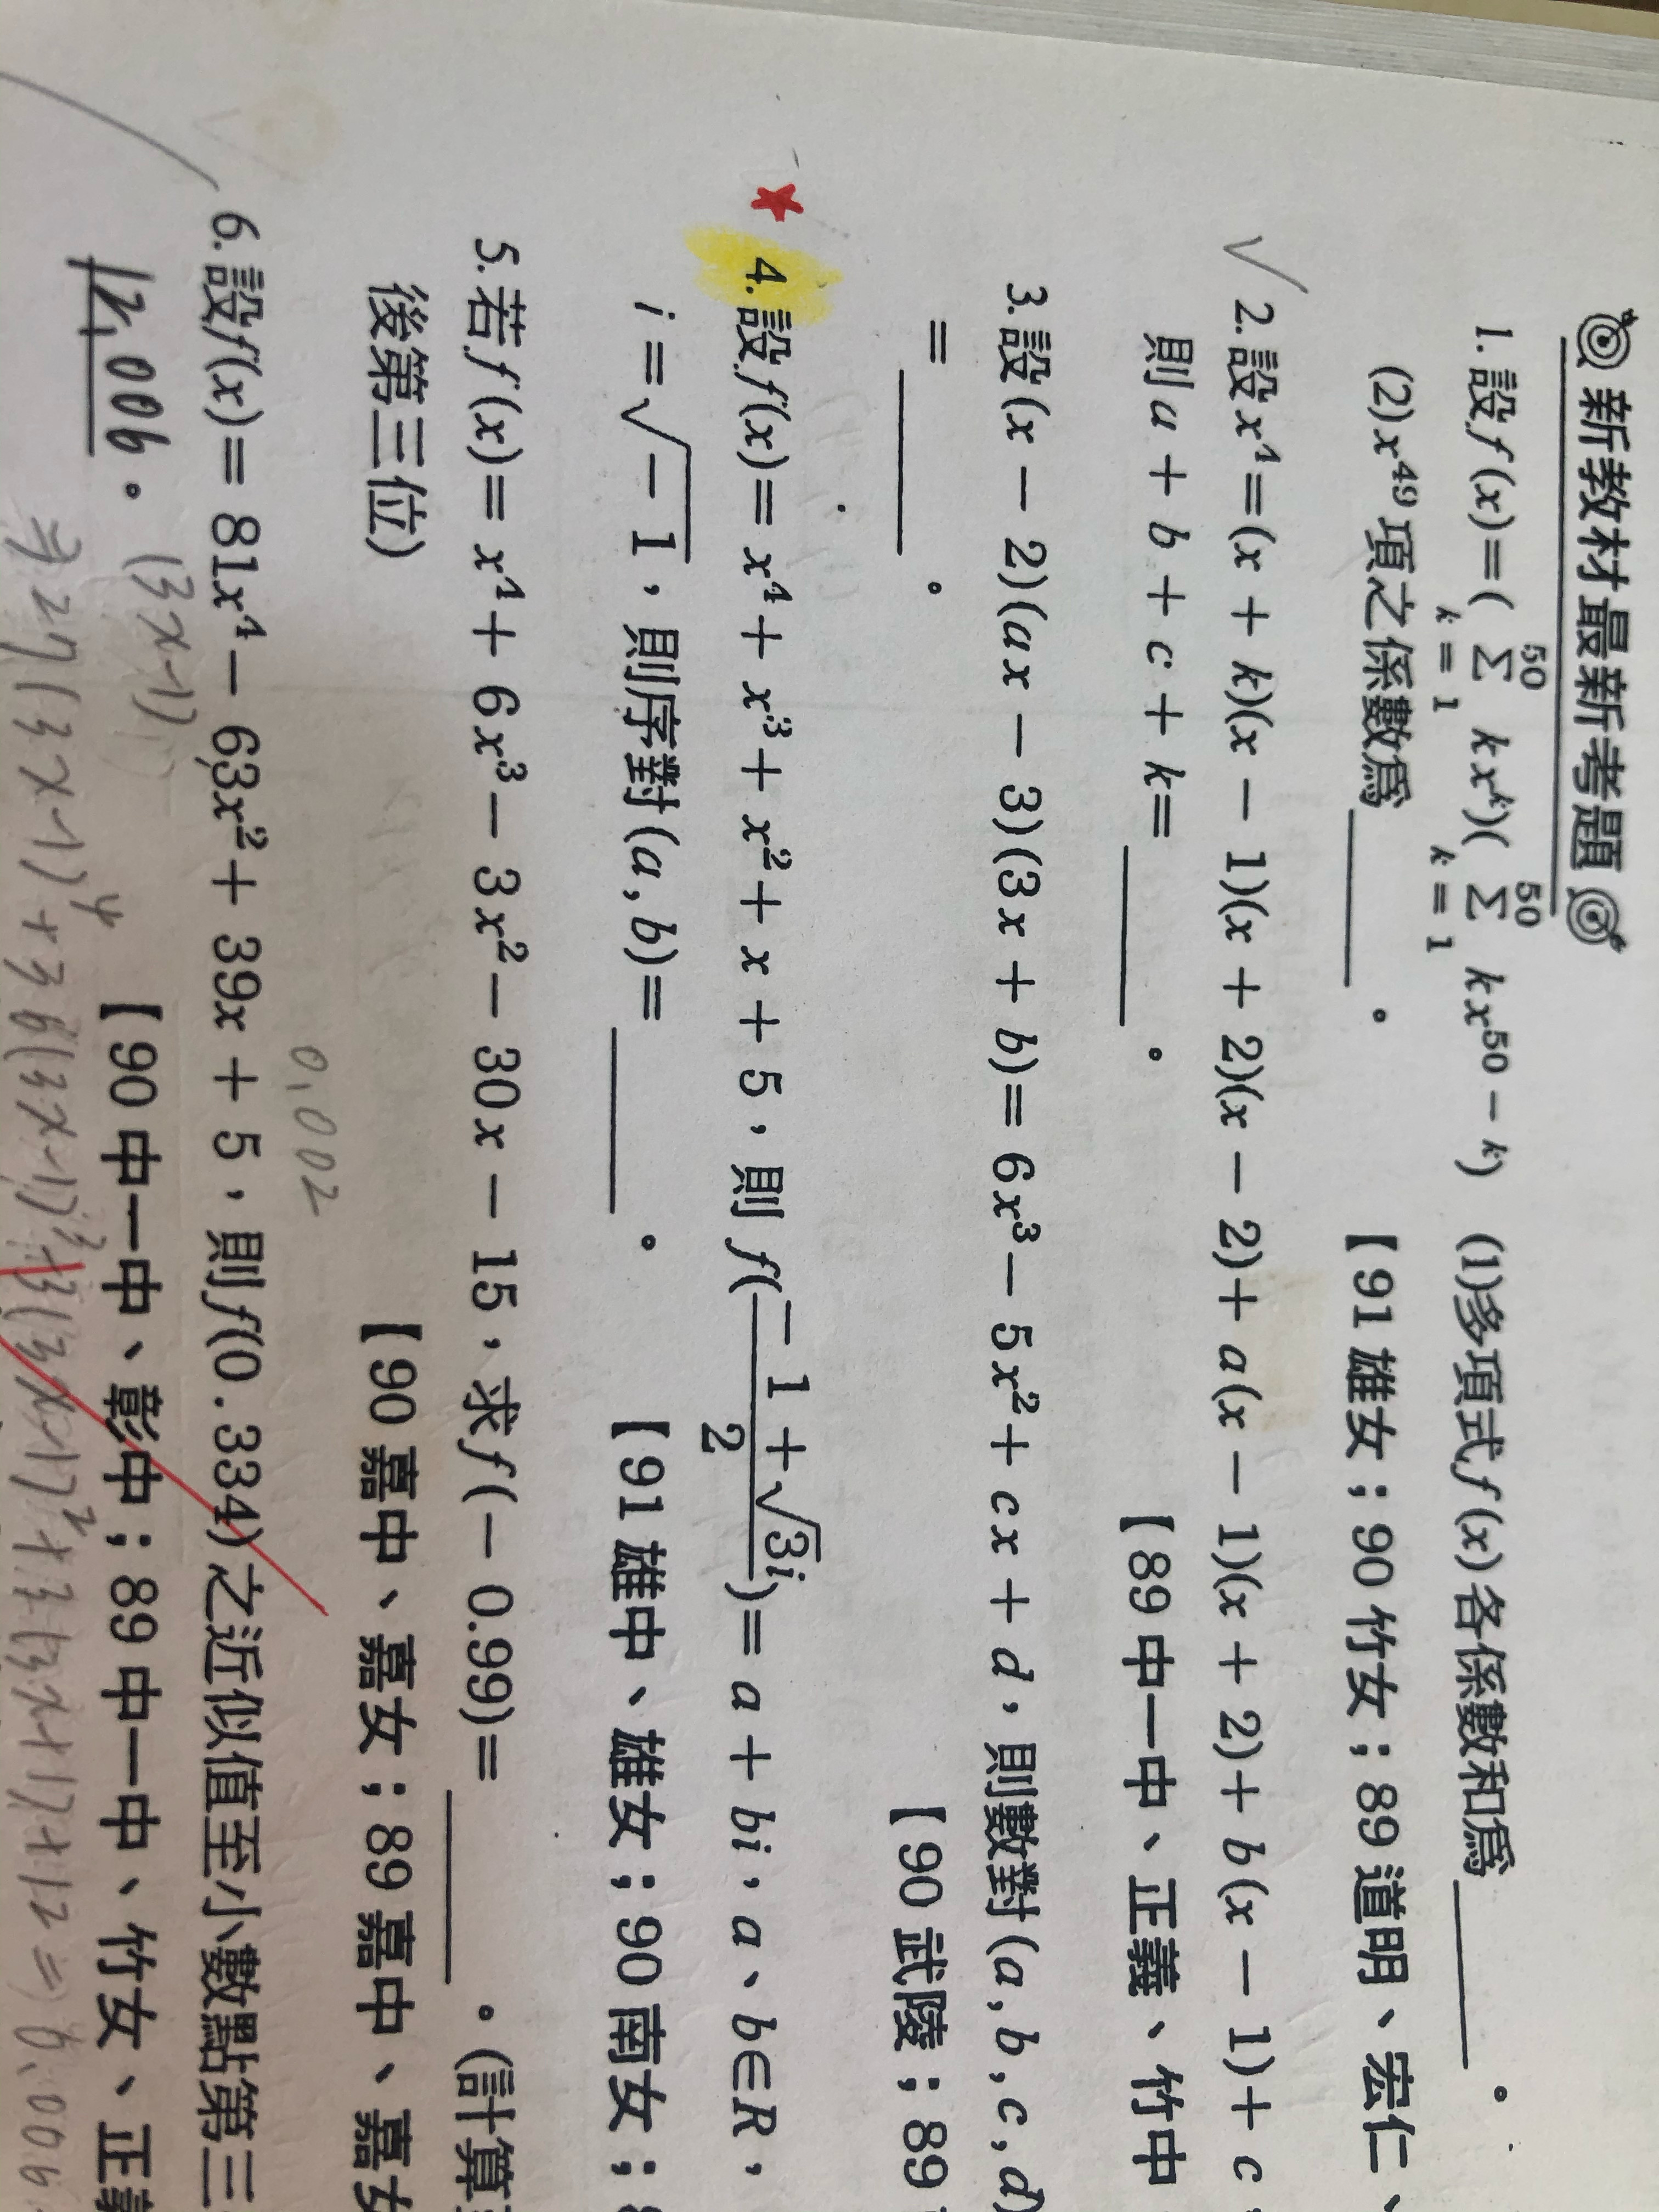 新教材最新考題
1.設f(x)=(∑_{k=1}^{50} kx^k)(∑_{k=1}^{50} kx^{50-k}) (1)多項式f(x)各係數和為______。
(2)x^{49}項之係數為______。 【91雄女；90竹女；89道明、宏仁、
√ 2.設x^4=(x+k)(x-1)(x+2)(x-2)+a(x-1)(x+2)+b(x-1)+c，
則a+b+c+k=______。 【89中一中、正義、竹中
3.設(x-2)(ax-3)(3x+b)=6x^3-5x^2+cx+d，則數對(a,b,c,d)
=______。 【90武陵；89
★ 4.設f(x)=x^4+x^3+x^2+x+5，則f((-1+√3i)/2)=a+bi，a、b∈R，
i=√-1，則序對(a,b)=______。 【91雄中、雄女；90南女；8
5.若f(x)=x^4+6x^3-3x^2-30x-15，求f(-0.99)=______。(計算
後第三位) 【90嘉中、嘉女；89嘉中、嘉女
0.002
6.設f(x)=81x^4-63x^2+39x+5，則f(0.334)之近似值至小數點第三
12.006。 【90中一中、彰中；89中一中、竹女、正義
(3x-1)
(3x-1)^4+36(3x-1)^3+3(3x-1)^2+3(3x-1)+12=